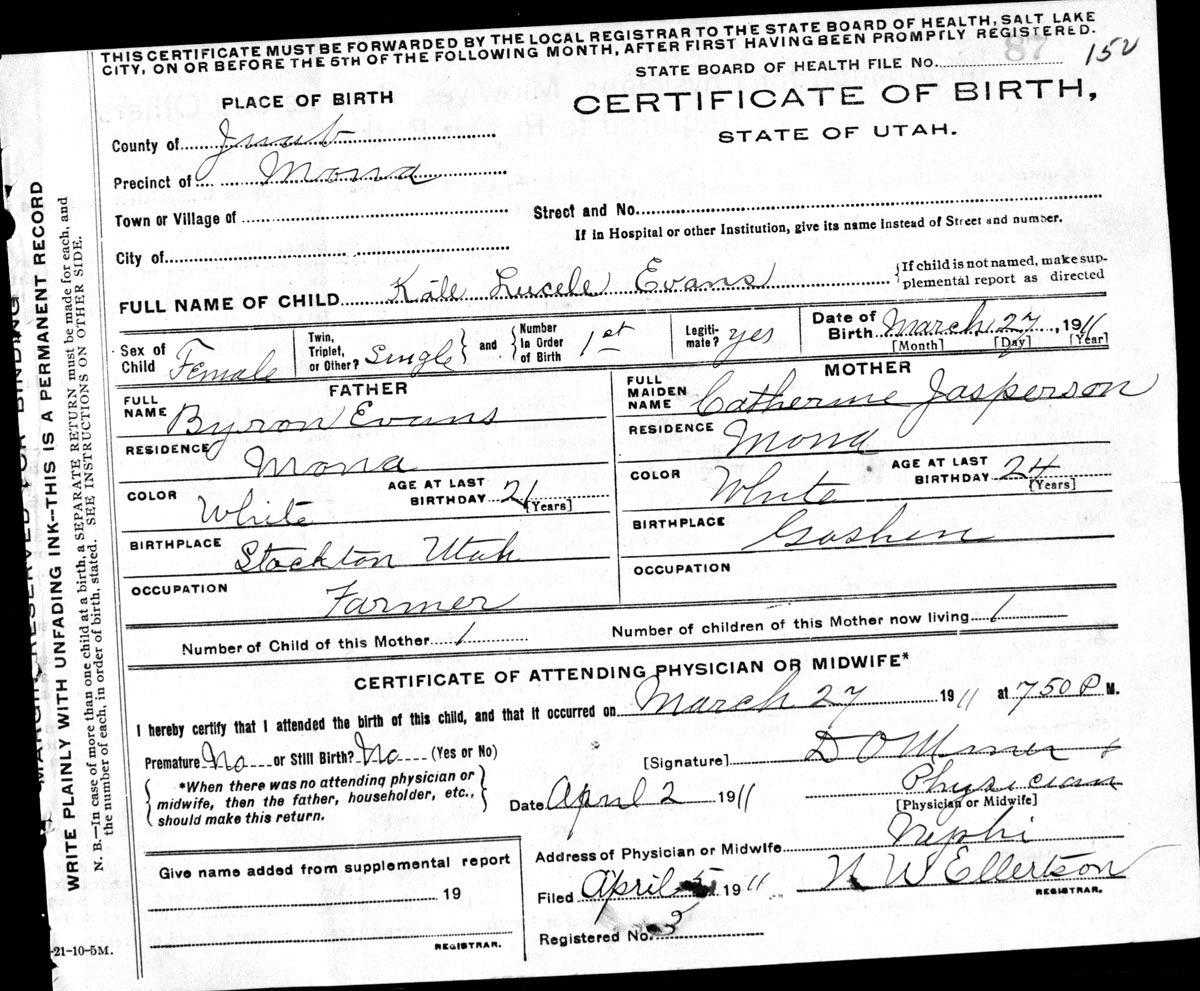 THIS CERTIFICATE MUST BE FORWARDED BY THE LOCAL REGISTRAR TO THE STATE BOARD OF HEALTH, SALT LAKE
CITY, ON OR BEFORE THE 5TH OF THE FOLLOWING MONTH, AFTER FIRST HAVING BEEN PROMPTLY REGISTERED.
87
STATE BOARD OF HEALTH FILE No. 152
PLACE OF BIRTH
CERTIFICATE OF BIRTH,
STATE OF UTAH.
County of Juab
Precinct of Mona
Town or Village of
Street and No.
If in Hospital or other Institution, give its name instead of Street and number.
City of
FULL NAME OF CHILD Kate Lucele Evans
If child is not named, make sup-
plemental report as directed
Sex of Child Female
Twin, Triplet, or Other? Single
and Number In Order of Birth 1st
Legiti-mate? yes
Date of Birth March 27, 1911
[Month] [Day] [Year]
FATHER
MOTHER
FULL NAME Byron Evans
FULL MAIDEN NAME Catherine Jasperson
RESIDENCE Mona
RESIDENCE Mona
COLOR White
AGE AT LAST BIRTHDAY 21 [Years]
COLOR White
AGE AT LAST BIRTHDAY 24 [Years]
BIRTHPLACE Stockton Utah
BIRTHPLACE Goshen
OCCUPATION Farmer
OCCUPATION
Number of Child of this Mother 1
Number of children of this Mother now living 1
CERTIFICATE OF ATTENDING PHYSICIAN OR MIDWIFE*
I hereby certify that I attended the birth of this child, and that it occurred on March 27 1911 at 7 50 P M.
Premature No or Still Birth? No (Yes or No)
[Signature] D O Miner
*When there was no attending physician or
midwife, then the father, householder, etc.,
should make this return.
Date April 2 1911
Physician
[Physician or Midwife]
Address of Physician or Midwife Nephi
Give name added from supplemental report
19
REGISTRAR.
Filed April 5 1911
N W Ellertson
REGISTRAR.
Registered No. 3
-21-10-5M.
MARGIN RESERVED FOR BINDING
WRITE PLAINLY WITH UNFADING INK--THIS IS A PERMANENT RECORD
N. B.—In case of more than one child at a birth, a SEPARATE RETURN must be made for each, and
the number of each, in order of birth, stated. SEE INSTRUCTIONS ON OTHER SIDE.